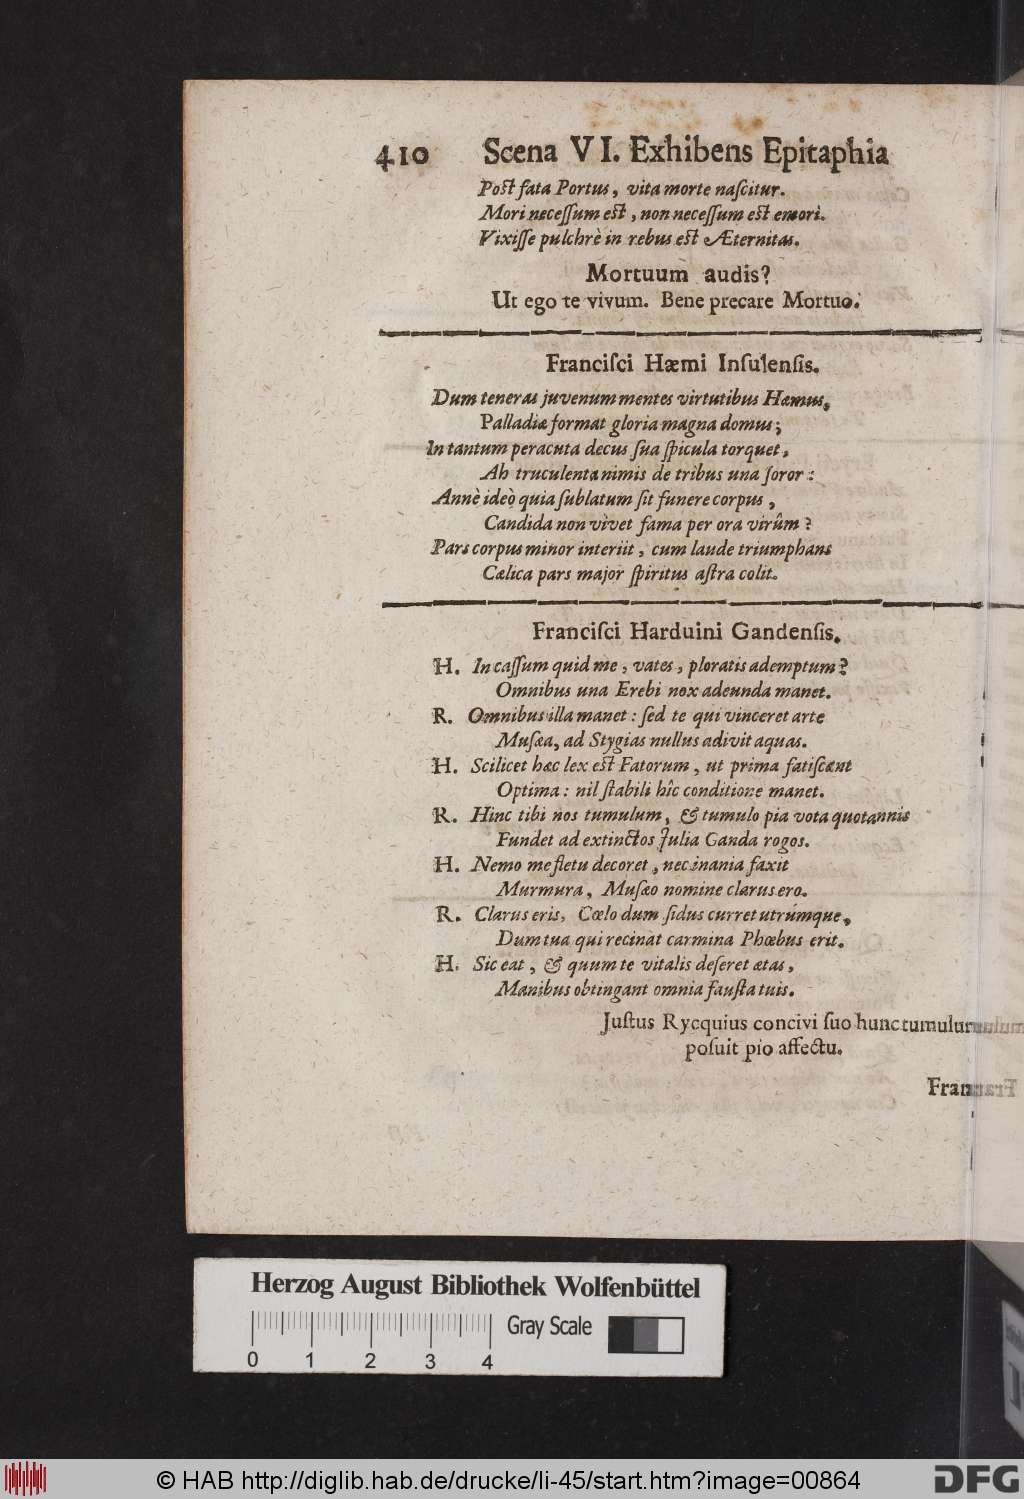 410 Scena VI. Exhibens Epitaphia
Post fata Portus, vita morte naſcitur.
Mori neceſſum est, non neceſſum est emori.
Vixiſſe pulchrè in rebus est Æternitas.
Mortuum audis?
Ut ego te vivum. Bene precare Mortuo.
Franciſci Hæmi Inſulenſis.
Dum teneras juvenum mentes virtutibus Hæmus,
Palladiæ format gloria magna domus;
In tantum peracuta decus ſua ſpicula torquet,
Ah truculenta nimis de tribus una ſoror:
Annè ideò quia ſublatum ſit funere corpus,
Candida non vivet fama per ora virûm?
Pars corpus minor interiit, cum laude triumphans
Cælica pars major ſpiritus aſtra colit.
Franciſci Harduini Gandenſis.
H. In caſſum quid me, vates, ploratis ademptum?
Omnibus una Erebi nox adeunda manet.
R. Omnibus illa manet: ſed te qui vinceret arte
Muſæa, ad Stygias nullus adivit aquas.
H. Scilicet hæc lex est Fatorum, ut prima fatiſcant
Optima: nil ſtabili hîc conditione manet.
R. Hinc tibi nos tumulum, & tumulo pia vota quotannis
Fundet ad extinctos Julia Ganda rogos.
H. Nemo me fletu decoret, nec inania faxit
Murmura, Muſæo nomine clarus ero.
R. Clarus eris, Cœlo dum ſidus curret utrúmque,
Dum tua qui recinat carmina Phœbus erit.
H. Sic eat, & quum te vitalis deſeret ætas,
Manibus obtingant omnia fauſta tuis.
Juſtus Rycquius concivi ſuo hunc tumulum
poſuit pio affectu.
Fran
Herzog August Bibliothek Wolfenbüttel
Gray Scale
0 1 2 3 4
© HAB http://diglib.hab.de/drucke/li-45/start.htm?image=00864
DFG